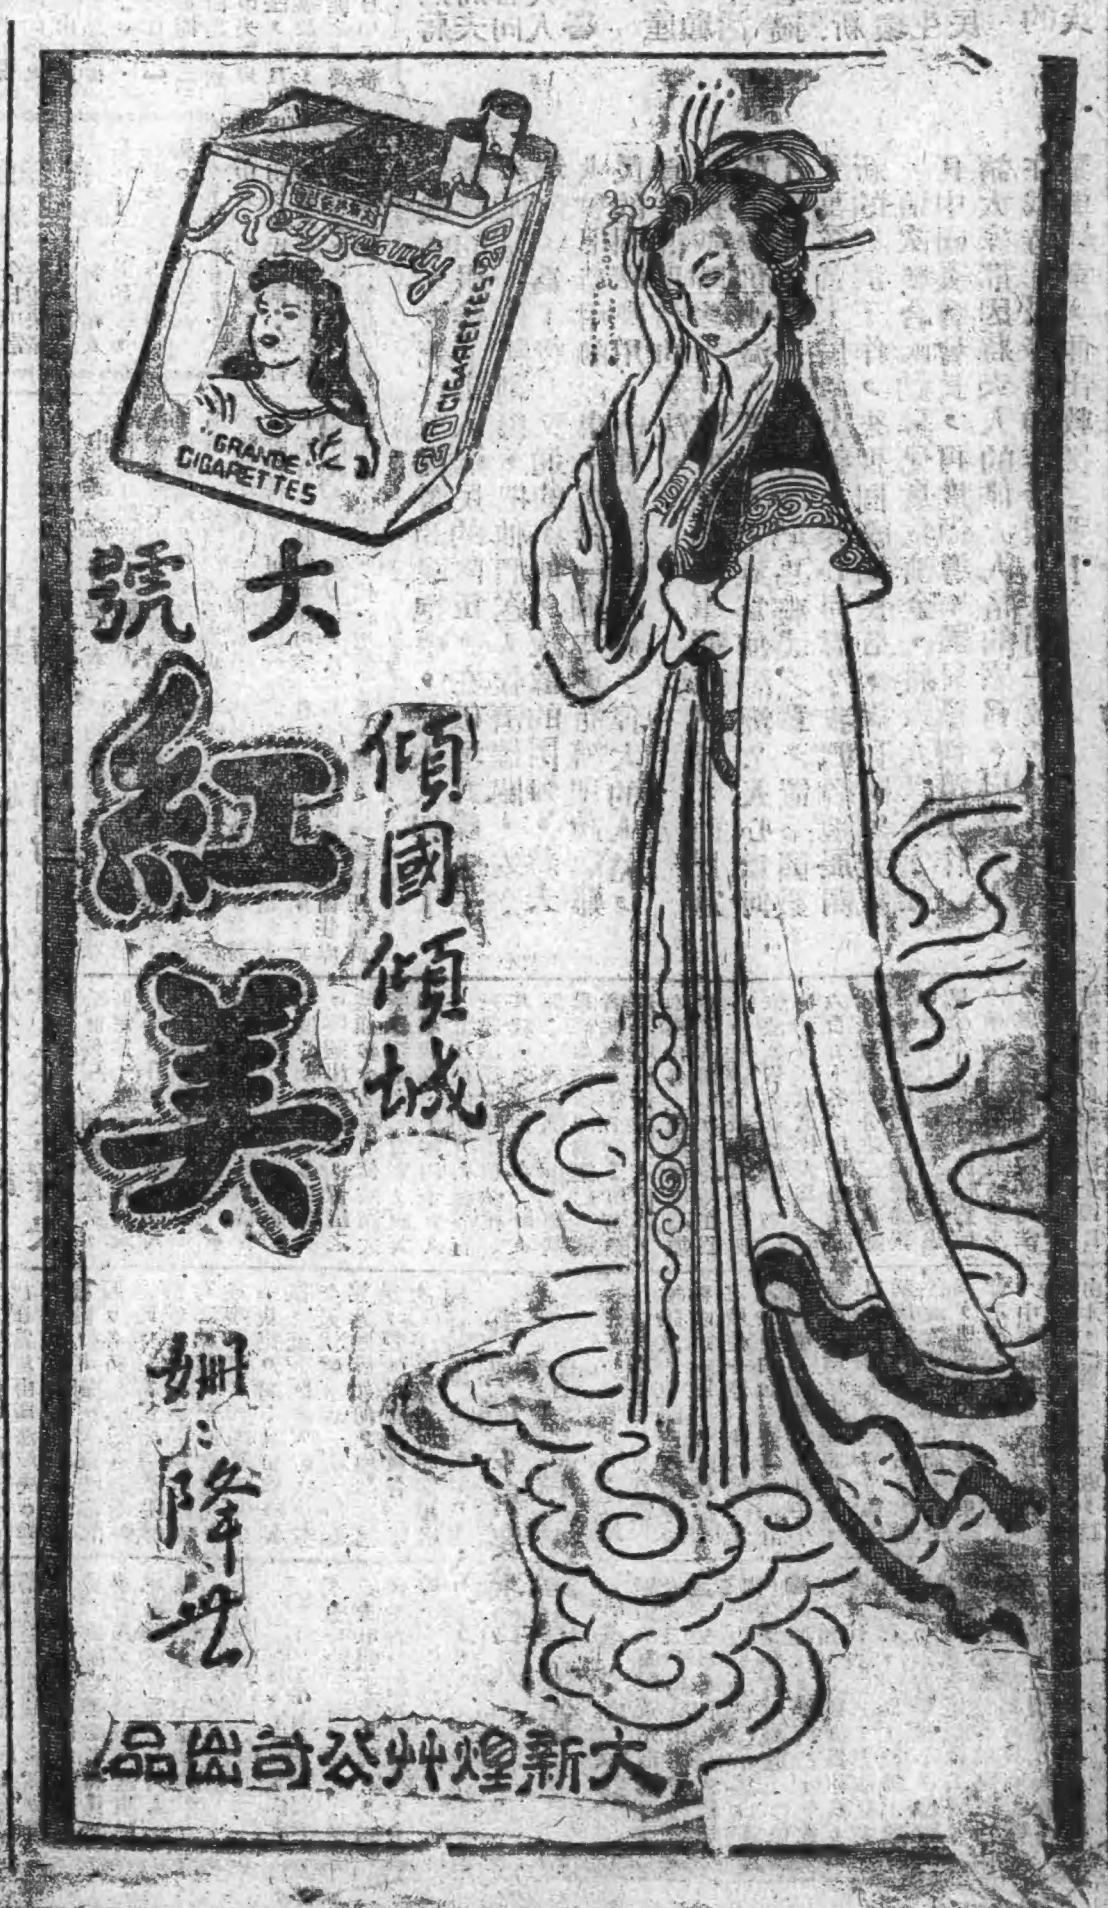 Ray Beauty
20 CIGARETTES 20
"GRANDE"
CIGARETTES
大號
紅美
傾國傾城
姍〻降世
大新煙艸公司出品